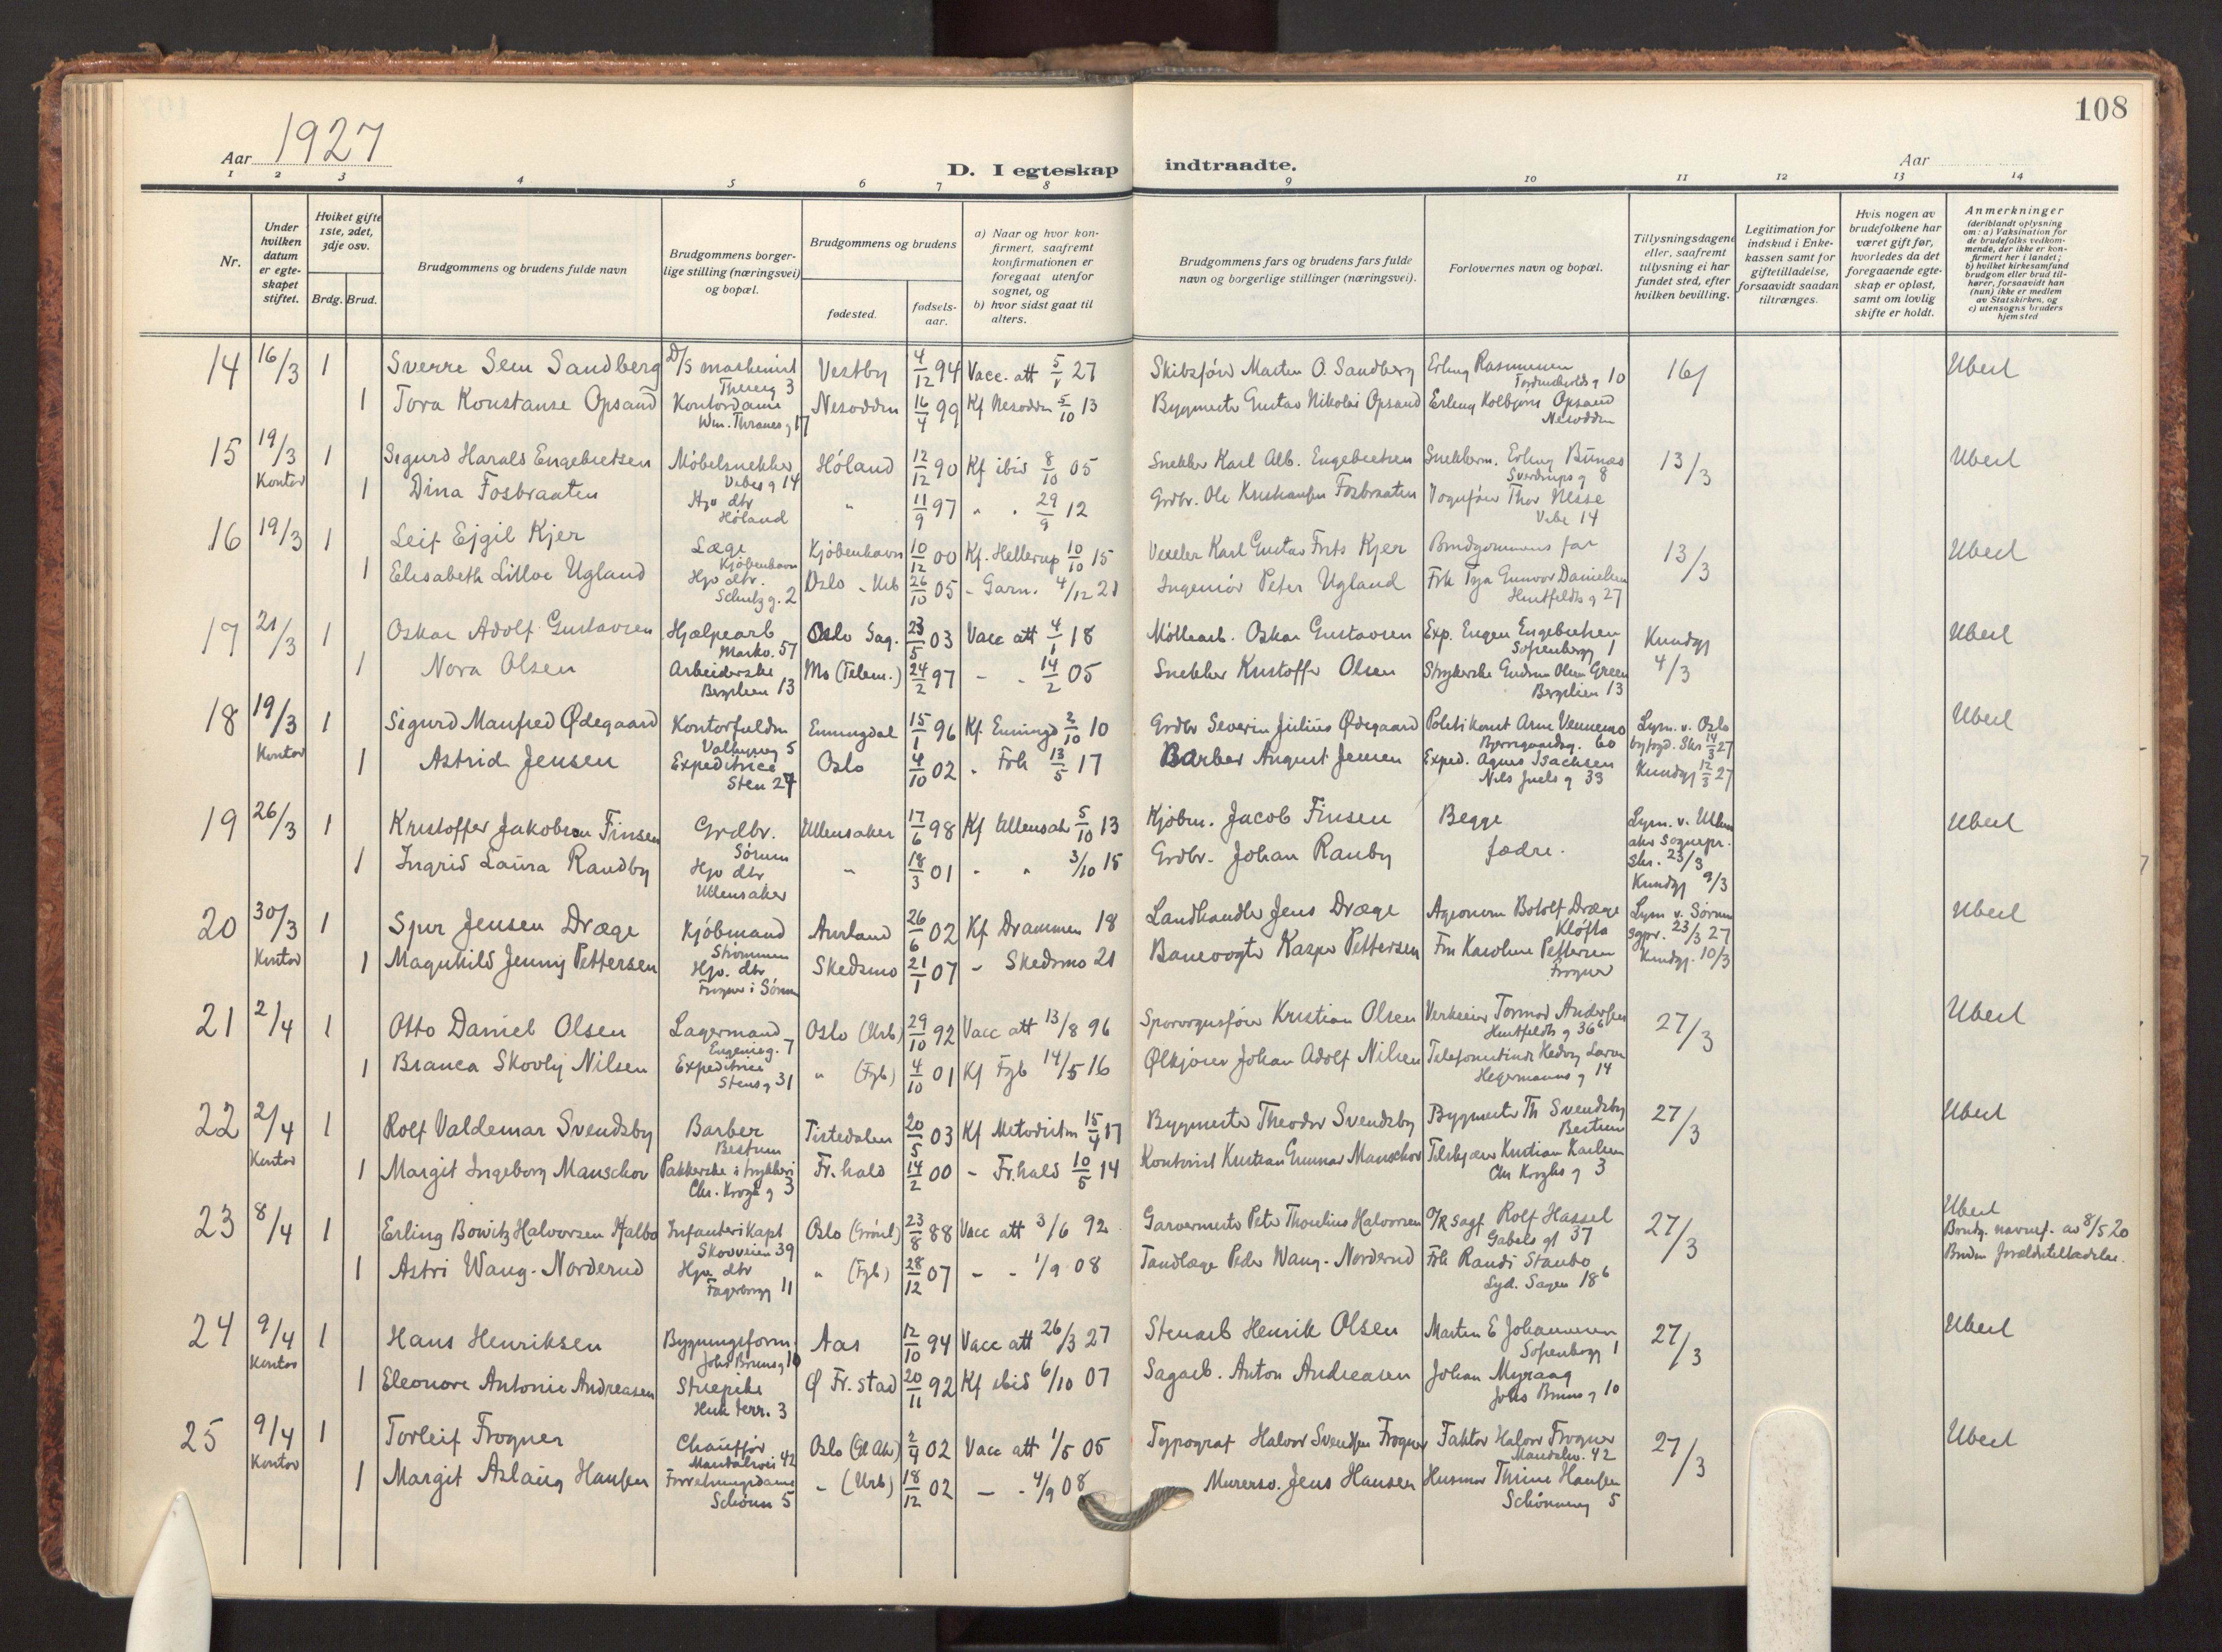 108
Aar 1927
D. I egteskap indtraadte.
Aar
1 2 3 4 5 6 7 8 9 10 11 12 13 14
Nr.
Under hvilken datum er egteskapet stiftet.
Hvilket gifte 1ste, 2det, 3dje osv.
Brdg. Brud.
Brudgommens og brudens fulde navn
Brudgommens borgerlige stilling (næringsvei) og bopæl.
Brudgommens og brudens
fødested.
fødselsaar.
a) Naar og hvor konfirmert, saafremt konfirmationen er foregaat utenfor sognet, og
b) hvor sidst gaat til alters.
Brudgommens fars og brudens fars fulde navn og borgerlige stillinger (næringsvei).
Forlovernes navn og bopæl.
Tillysningsdagene eller, saafremt tillysning ei har fundet sted, efter hvilken bevilling.
Legitimation for indskud i Enkekassen samt for giftetilladelse, forsaavidt saadan tiltrænges.
Hvis nogen av brudefolkene har været gift før, hvorledes da det foregaaende egteskap er opløst, samt om lovlig skifte er holdt.
Anmerkninger
(deriblandt oplysning om: a) Vaksination for de brudefolks vedkommende, der ikke er konfirmert her i landet;
b) hvilket kirkesamfund brudgom eller brud tilhører, forsaavidt han (hun) ikke er medlem av Statskirken, og
c) utensogns bruders hjemsted
14 16/3 1 Sverre Sem Sandberg D/S maskinist 3 Vestby 4/12 94 Vacc. att 5/1 27 Skibsfører Marten O. Sandberg Erling Rasmussen 10 16/ Ubeil
1 Tora Konstanse Opsand Kontordame Wm. Thranes g 17 Nesodden 16/4 99 Kf Nesodden 5/10 13 Bygmester Gustav Nikolai Opsand Erling Kolbjørn Opsand Nesodden
15 19/3 Kontor 1 Sigurd Harald Engebretsen Møbelsnekker Vibes g 14 Høland 12/12 90 Kf ibid 8/10 05 Snekker Karl Alb. Engebretsen Snekkerm. Erling Bunæs Sverdrups g 8 13/3 Ubeil
1 Dina Fosbraaten Hjv dtr Høland " 11/9 97 " " 29/9 12 Grdbr. Ole Kristiansen Fosbraaten Vognfører Thor Nesse Vibe 14
16 19/3 1 Leif Ejgil Kjer Læge Kjøbenhavn Kjøbenhavn 10/12 00 Kf. Hellerup 10/10 15 Vexeler Karl Gustav Frits Kjer Brudgommens far 13/3 Ubeil
1 Elisabeth Lilloe Ugland Hjv dtr. Schultzg. 2 Oslo - Urb 26/10 05 - Garn. 4/12 21 Ingeniør Peter Ugland Frk Gunvor Danielsen Huitfeldts g 27
17 21/3 1 Oskar Adolf Gustavsen Hjælpearb Markv. 57 Oslo Sag. 23/5 03 Vacc att 4/1 18 Møllearb. Oskar Gustavsen Exp. Eugen Engebretsen Sofienbergg 1 Kundgj 4/3 Ubeil
1 Nora Olsen Arbeiderske Bergslien 13 Mo (Telem.) 24/2 97 - - 14/2 05 Snekker Kristoffer Olsen Strykerske Gudrun Olsen Green Bergslien 13
18 19/3 Kontor 1 Sigurd Manfred Ødegaard Kontorfuldm 5 Enningdal 15/1 96 Kf Enningd 2/10 10 Grdbr Severin Julius Ødegaard Politikonst Arne Vennemo Bjerregaardsg. 60 Lysn. v. Oslo byfgd. Skr 14/3 27 Ubeil
1 Astrid Jensen Expeditrice Sten 27 Oslo 4/10 02 " Frh 13/5 17 Barber August Jensen Exped. Agnes Isachsen Nils Juels g 33 Kundgj 12/3 27
19 26/3 1 Kristoffer Jakobsen Finsen Grdbr. Sørum Ullensaker 17/6 98 Kf Ullensak 5/10 13 Kjøbm. Jacob Finsen Begge Lysn. v. Ullensaker Sognepr. Skr. 23/3 Ubeil
1 Ingrid Laura Randby Hjv dtr Ullensaker " 18/3 01 " " 3/10 15 Grdbr. Johan Ranby fædre. Kundgj 9/3
20 30/3 Kontor 1 Sjur Jensen Dræge Kjøbmand Strømmen Aurland 26/6 02 Kf Drammen 18 Landhandler Jens Dræge Agronom Botolf Dræge Kløfta Lysn v. Sørum sgpr. 23/3 27 Ubeil
1 Magnhild Jenny Pettersen Hjv. dtr Frogner i Sørum Skedsmo 21/1 07 - Skedsmo 21 Banevogter Kasper Pettersen Fru Karoline Pettersen Frogner Kundgj. 10/3
21 2/4 1 Otto Daniel Olsen Lagermand Eugenieg. 7 Oslo (Urb) 29/10 92 Vacc att 13/8 96 Sporvognsfører Kristian Olsen Verkseier Tormod Andersen Huitfeldts g 36 27/3 Ubeil
1 Branca Skovly Nilsen Expeditrice Stensg 31 " (Fgb) 4/10 01 Kf Fgb 14/5 16 Ølkjører Johan Adolf Nilsen Hegermanns g 14
22 2/4 Kontor 1 Rolf Valdemar Svendsby Barber Bestum Tistedalen 20/5 03 Kf Metodistm 15/4 17 Bygmester Theodor Svendsby Bygmester Th Svendsby Bestum 27/3 Ubeil
1 Margit Ingeborg Manschov Pakkerske i trykkeri Chr. Krogs g 3 Fr.hald 14/2 00 - Fr.hald 10/5 14 Kontorist Kristian Gunnar Manschov Kristian Karlsen Chr Kroghs g 3
23 8/4 1 Erling Bowitz Halvorsen Kalbo Infanteri Kapt Skovveien 39 Oslo (Grønl) 23/8 88 Vacc att 3/6 92 Garvermester Peter Thorelius Halvorsen O/R Sagf. Rolf Hassel Gabels gt 37 27/3 Ubeil
Brudg. navnef. av 8/5 20
1 Astri Wang-Norderud Hjv dtr Fagerborgg 11 " (Fgb) 28/12 07 - - 1/9 08 Tandlæge Peder Wang-Norderud Frk Randi Staubo Lyd. Sagen 18 Bruden forældretilladelse.
24 9/4 Kontor 1 Hans Henriksen Bygningsform. Johs Brunsg 10 Aas 12/10 94 Vacc att 26/3 27 Stenarb Henrik Olsen Marten E Johannessen Sofienbergg 1 27/3 Ubeil
1 Eleonore Antonie Andreasen Stuepike Huk terr. 3 Ø Fr.stad 20/11 92 Kf ibid 6/10 07 Sagarb. Anton Andreasen Johan Myraag Johs Bruns g 10
25 9/4 Kontor 1 Torleif Frogner Chauffør Mandalsvei 42 Oslo (Gl Ak) 2/9 02 Vacc att 1/5 05 Typograf Halvor Svendsen Frogner Faktor Halvor Frogner Mandalsv. 42 27/3 Ubeil
1 Margit Aslaug Hansen Forretningsdame Schønn 5 " (Urb) 18/12 02 - - 4/9 08 Murersv. Jens Hansen Husmor Thrine Hansen Schønning 5